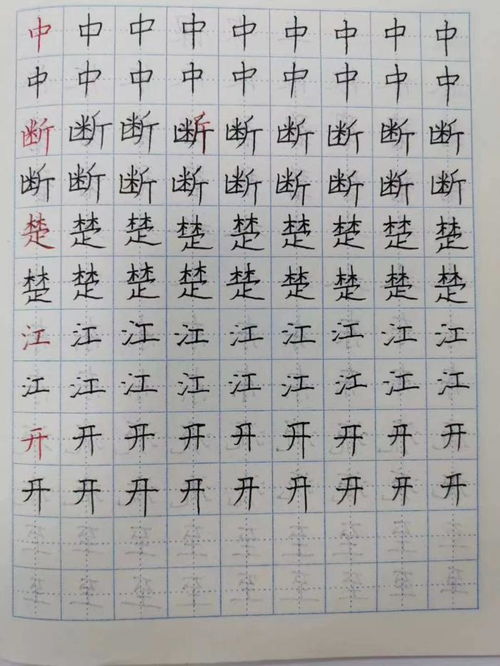 中中中中中中中中中
中中中中中中中中中
断断断断断断断断断
断断断断断断断断断
楚楚楚楚楚楚楚楚楚
楚楚楚楚楚楚楚楚楚
江江江江江江江江江
江江江江江江江江江
开开开开开开开开开
开开开开开开开开开
至至至至至至至至至
至至至至至至至至至